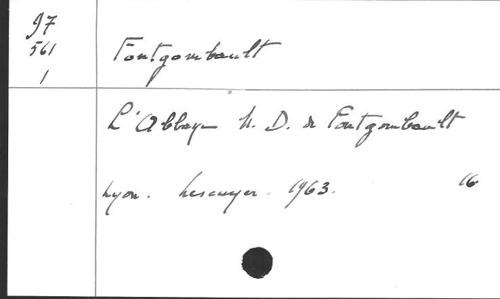 97
561
1
Fontgombault
L'Abbaye N. D. de Fontgombault
Lyon. Lescuyer. 1963. 16